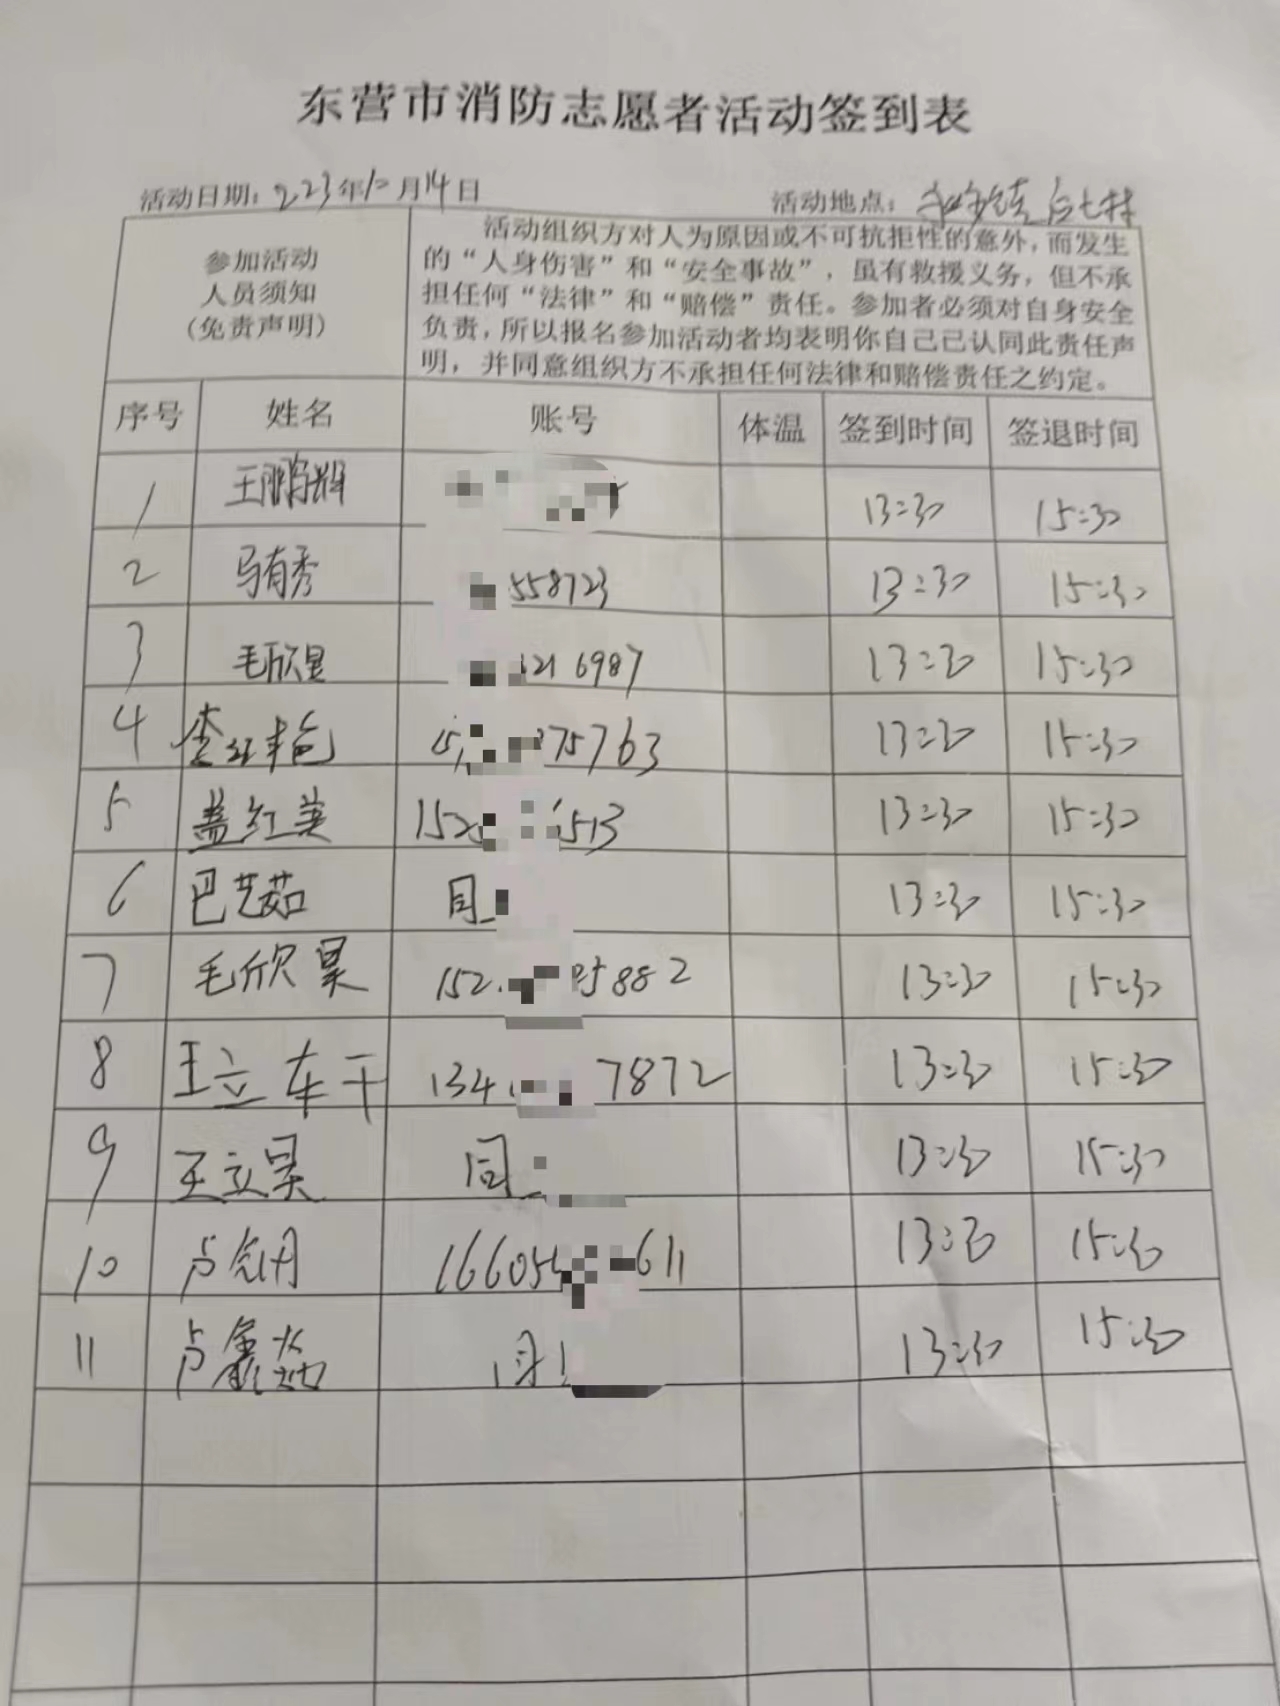 东营市消防志愿者活动签到表
活动日期：223年10月14日 活动地点：
参加活动
人员须知
(免责声明)
活动组织方对人为原因或不可抗拒性的意外，而发生
的“人身伤害”和“安全事故”，虽有救援义务，但不承
担任何“法律”和“赔偿”责任。参加者必须对自身安全
负责，所以报名参加活动者均表明你自己已认同此责任声
明，并同意组织方不承担任何法律和赔偿责任之约定。
序号 姓名 账号 体温 签到时间 签退时间
1 王鹏辉 13:30 15:30
2 马有秀 558723 13:30 15:30
3 毛欣昱 216987 13:30 15:30
4 李红艳 15 75763 13:30 15:30
5 盖红英 152 513 13:30 15:30
6 巴艺茹 同 13:30 15:30
7 毛欣昊 152 5882 13:30 15:30
8 王立轩 134 7872 13:30 15:30
9 王立昊 同 13:30 15:30
10 卢 16605 611 13:30 15:30
11 卢鑫 13:30 15:30